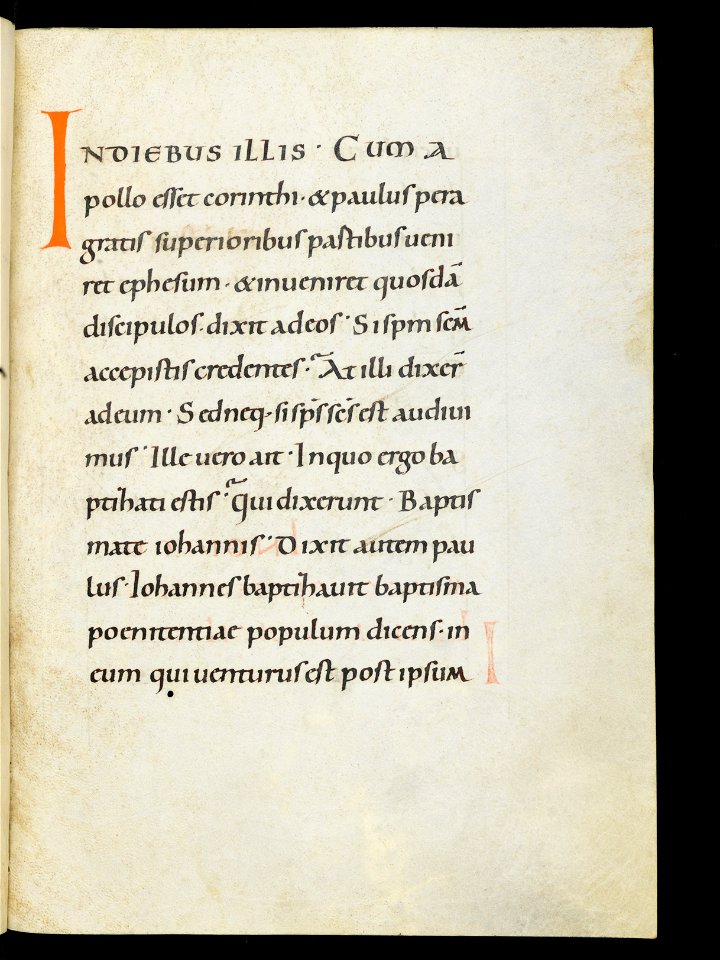 INDIEBUS ILLIS · CUM A
pollo esset corinthi · & paulus pera
gratis superioribus pastibus ueni
ret ephesum · & inueniret quosdā
discipulos · dixit ad eos · Si spm scm̄
accepistis credentes · At illi dixer̄
ad eum · Sed neq · si sp̄s sc̄s est audiui
mus · Ille uero ait · In quo ergo ba
ptihati estis · Qui dixerunt · Baptis
mate iohannis · Dixit autem pau
lus · Iohannes baptihauit baptisma
poenitentiae populum dicens · in
eum qui uenturus est post ipsum